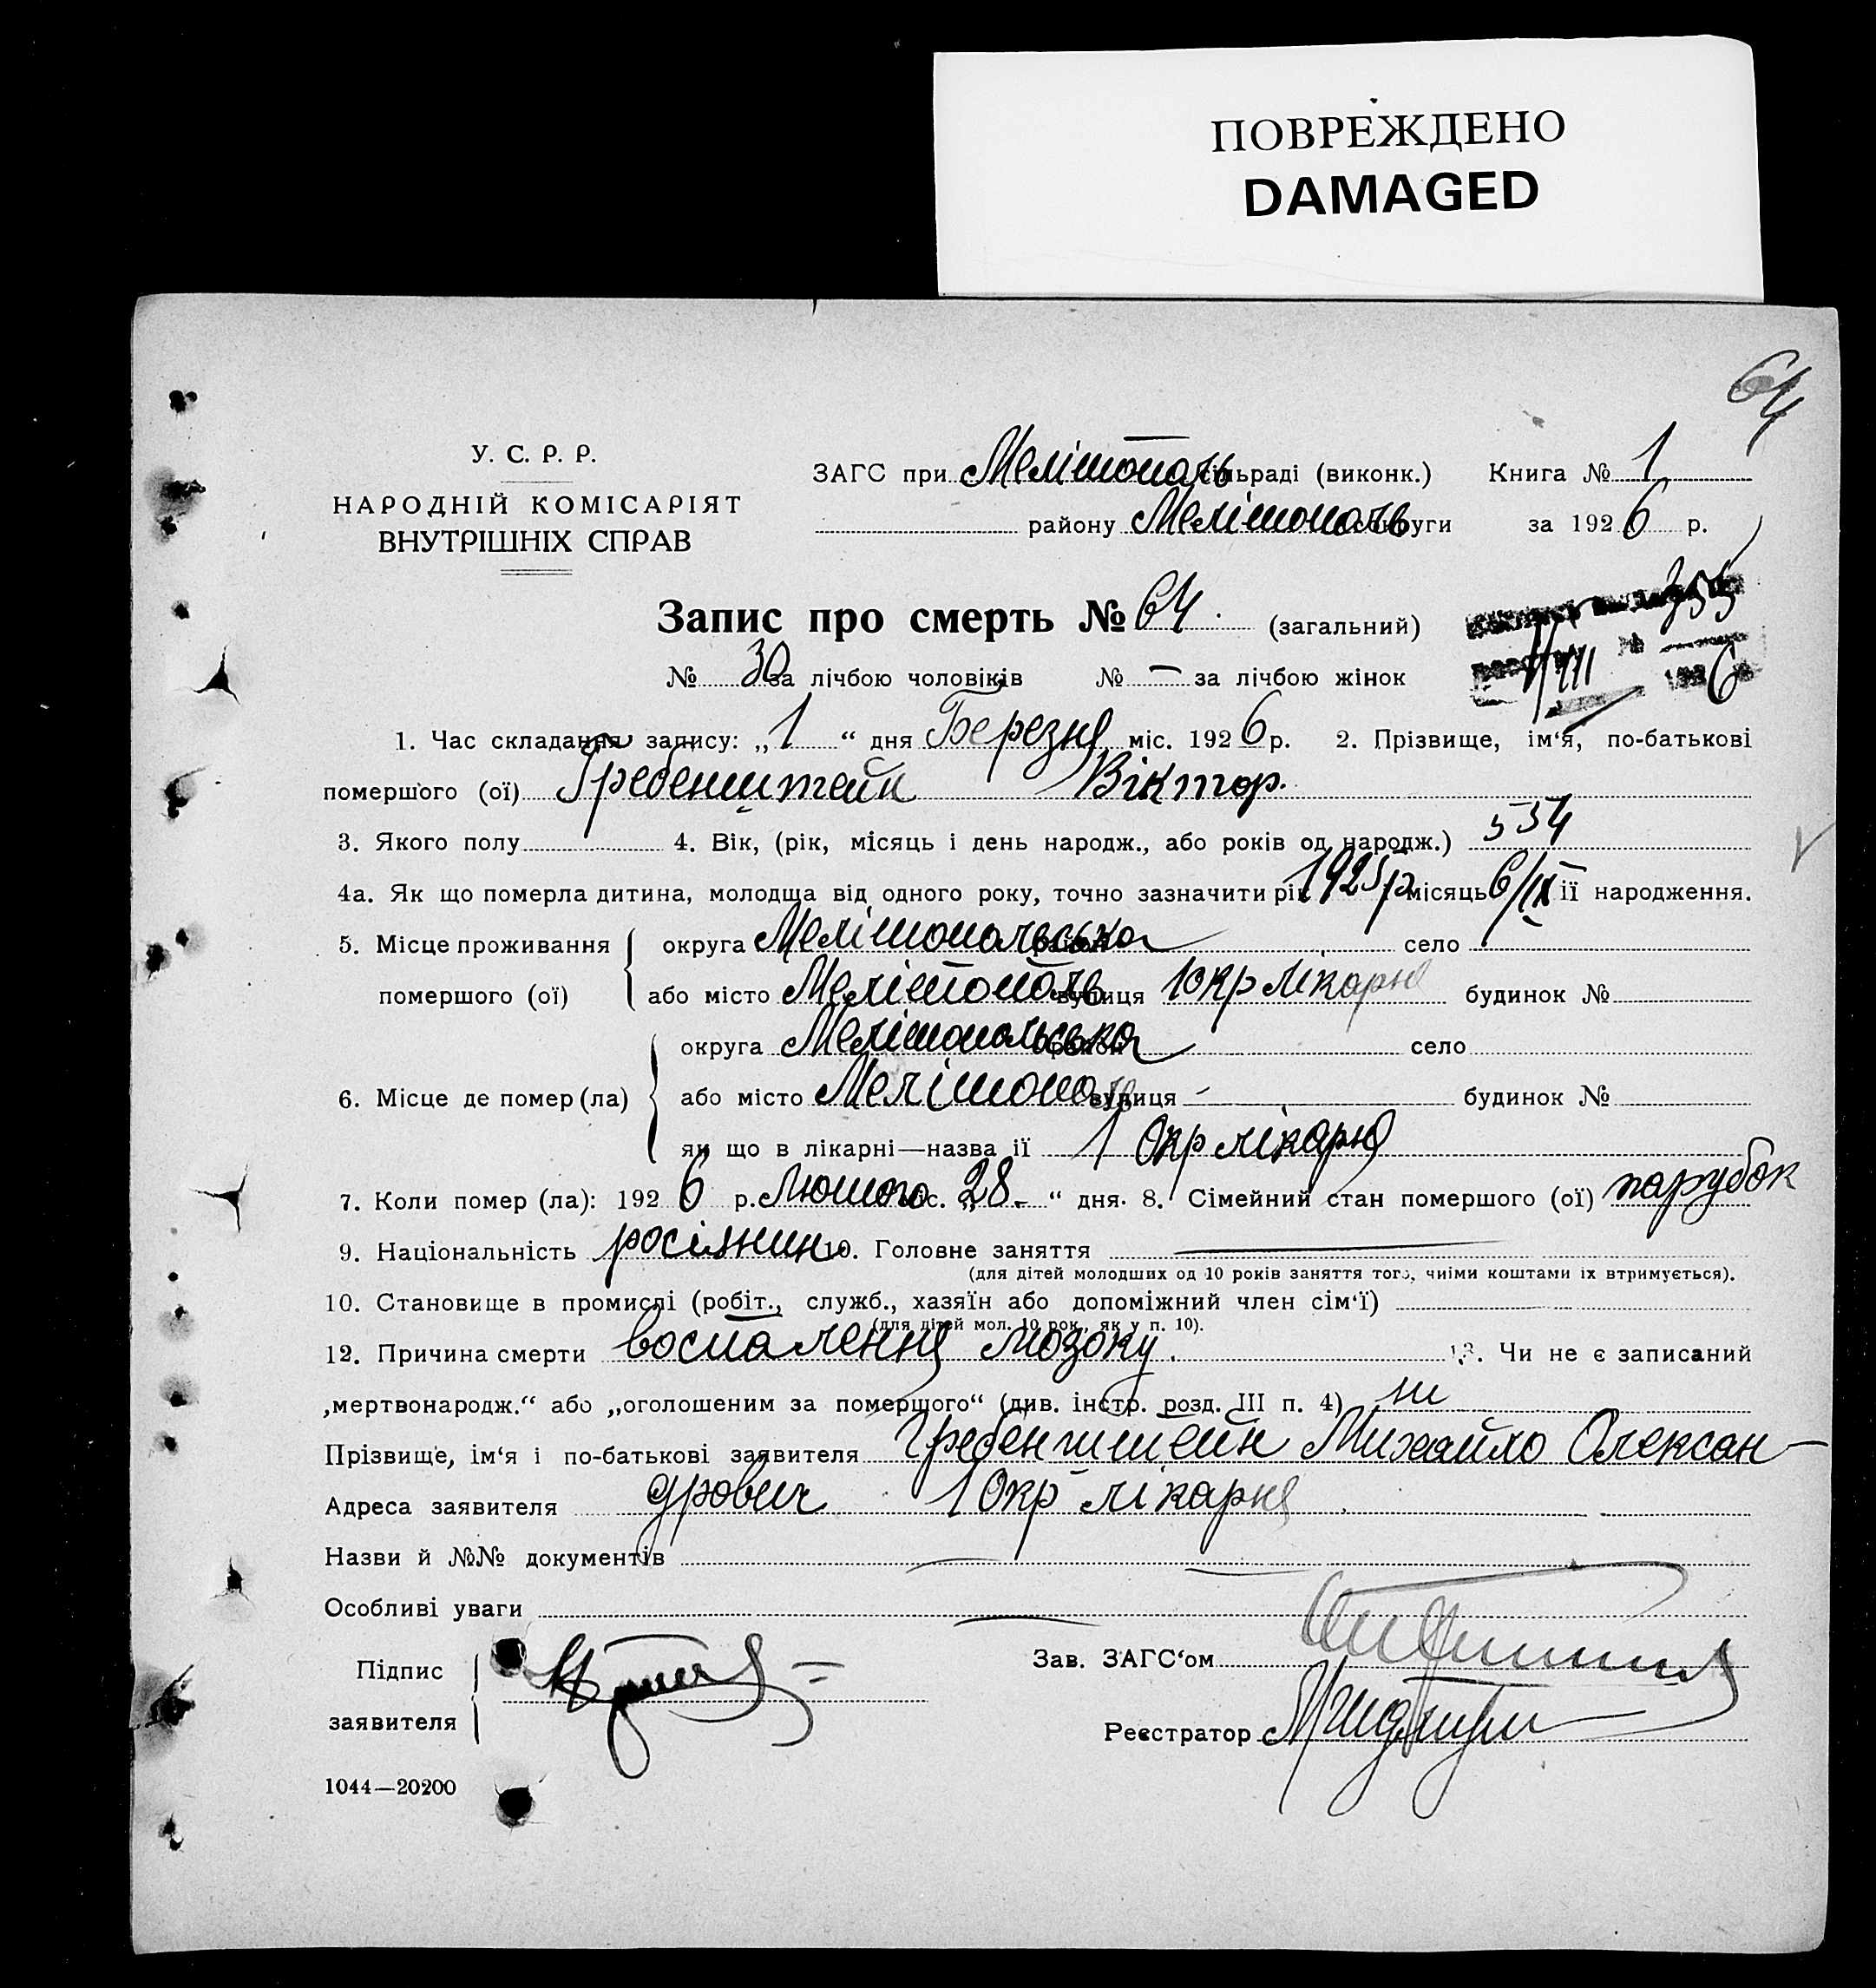 ПОВРЕЖДЕНО
DAMAGED
64
У. С. Р. Р.
НАРОДНІЙ КОМІСАРІЯТ
ВНУТРІШНІХ СПРАВ
ЗАГС при Мелітополь сільраді (виконк.) Книга № 1
району Мелітополь округи за 1926 р.
Запис про смерть № 64. (загальний)
355
№ 30 за лічбою чоловіків № — за лічбою жінок
1/III 1926
1. Час складання запису: „1“ дня Березня міс. 1926 р. 2. Прізвище, ім‘я, по-батькові
помершого (ої) Гребенштейн Віктор.
3. Якого полу 4. Вік, (рік, місяць і день народж., або років од народж.) 5 34
4а. Як що померла дитина, молодща від одного року, точно зазначити рік 1925 р місяць 6/IX ії народження.
5. Місце проживання помершого (ої) округа Мелітопольська район село
або місто Мелітополь вулиця 1 окр лікарня будинок №
6. Місце де помер (ла) округа Мелітопольська район село
або місто Мелітополь вулиця — будинок №
як що в лікарні—назва ії 1 Окр лікарня
7. Коли помер (ла): 1926 р. Лютого міс. „28.“ дня. 8. Сімейний стан помершого (ої) парубок
9. Національність росіянин 10. Головне заняття —
(для дітей молодших од 10 років заняття того, чиіми коштами іх втримується).
10. Становище в промислі (робіт., служб., хазяїн або допоміжний член сім‘ї)
(для дітей мол. 10 рок., як у п. 10).
12. Причина смерти воспалення мозоку. 13. Чи не є записаний
„мертвонародж.“ або „оголошеним за помершого“ (див. інстр. розд. III п. 4) ни
Прізвище, ім‘я і по-батькові заявителя Гребенштейн Михайло Олексан-
Адреса заявителя дрович 1 Окр лікарня
Назви й №№ документів —
Особливі уваги —
Підпис заявителя
Зав. ЗАГС‘ом
Реєстратор
1044—20200